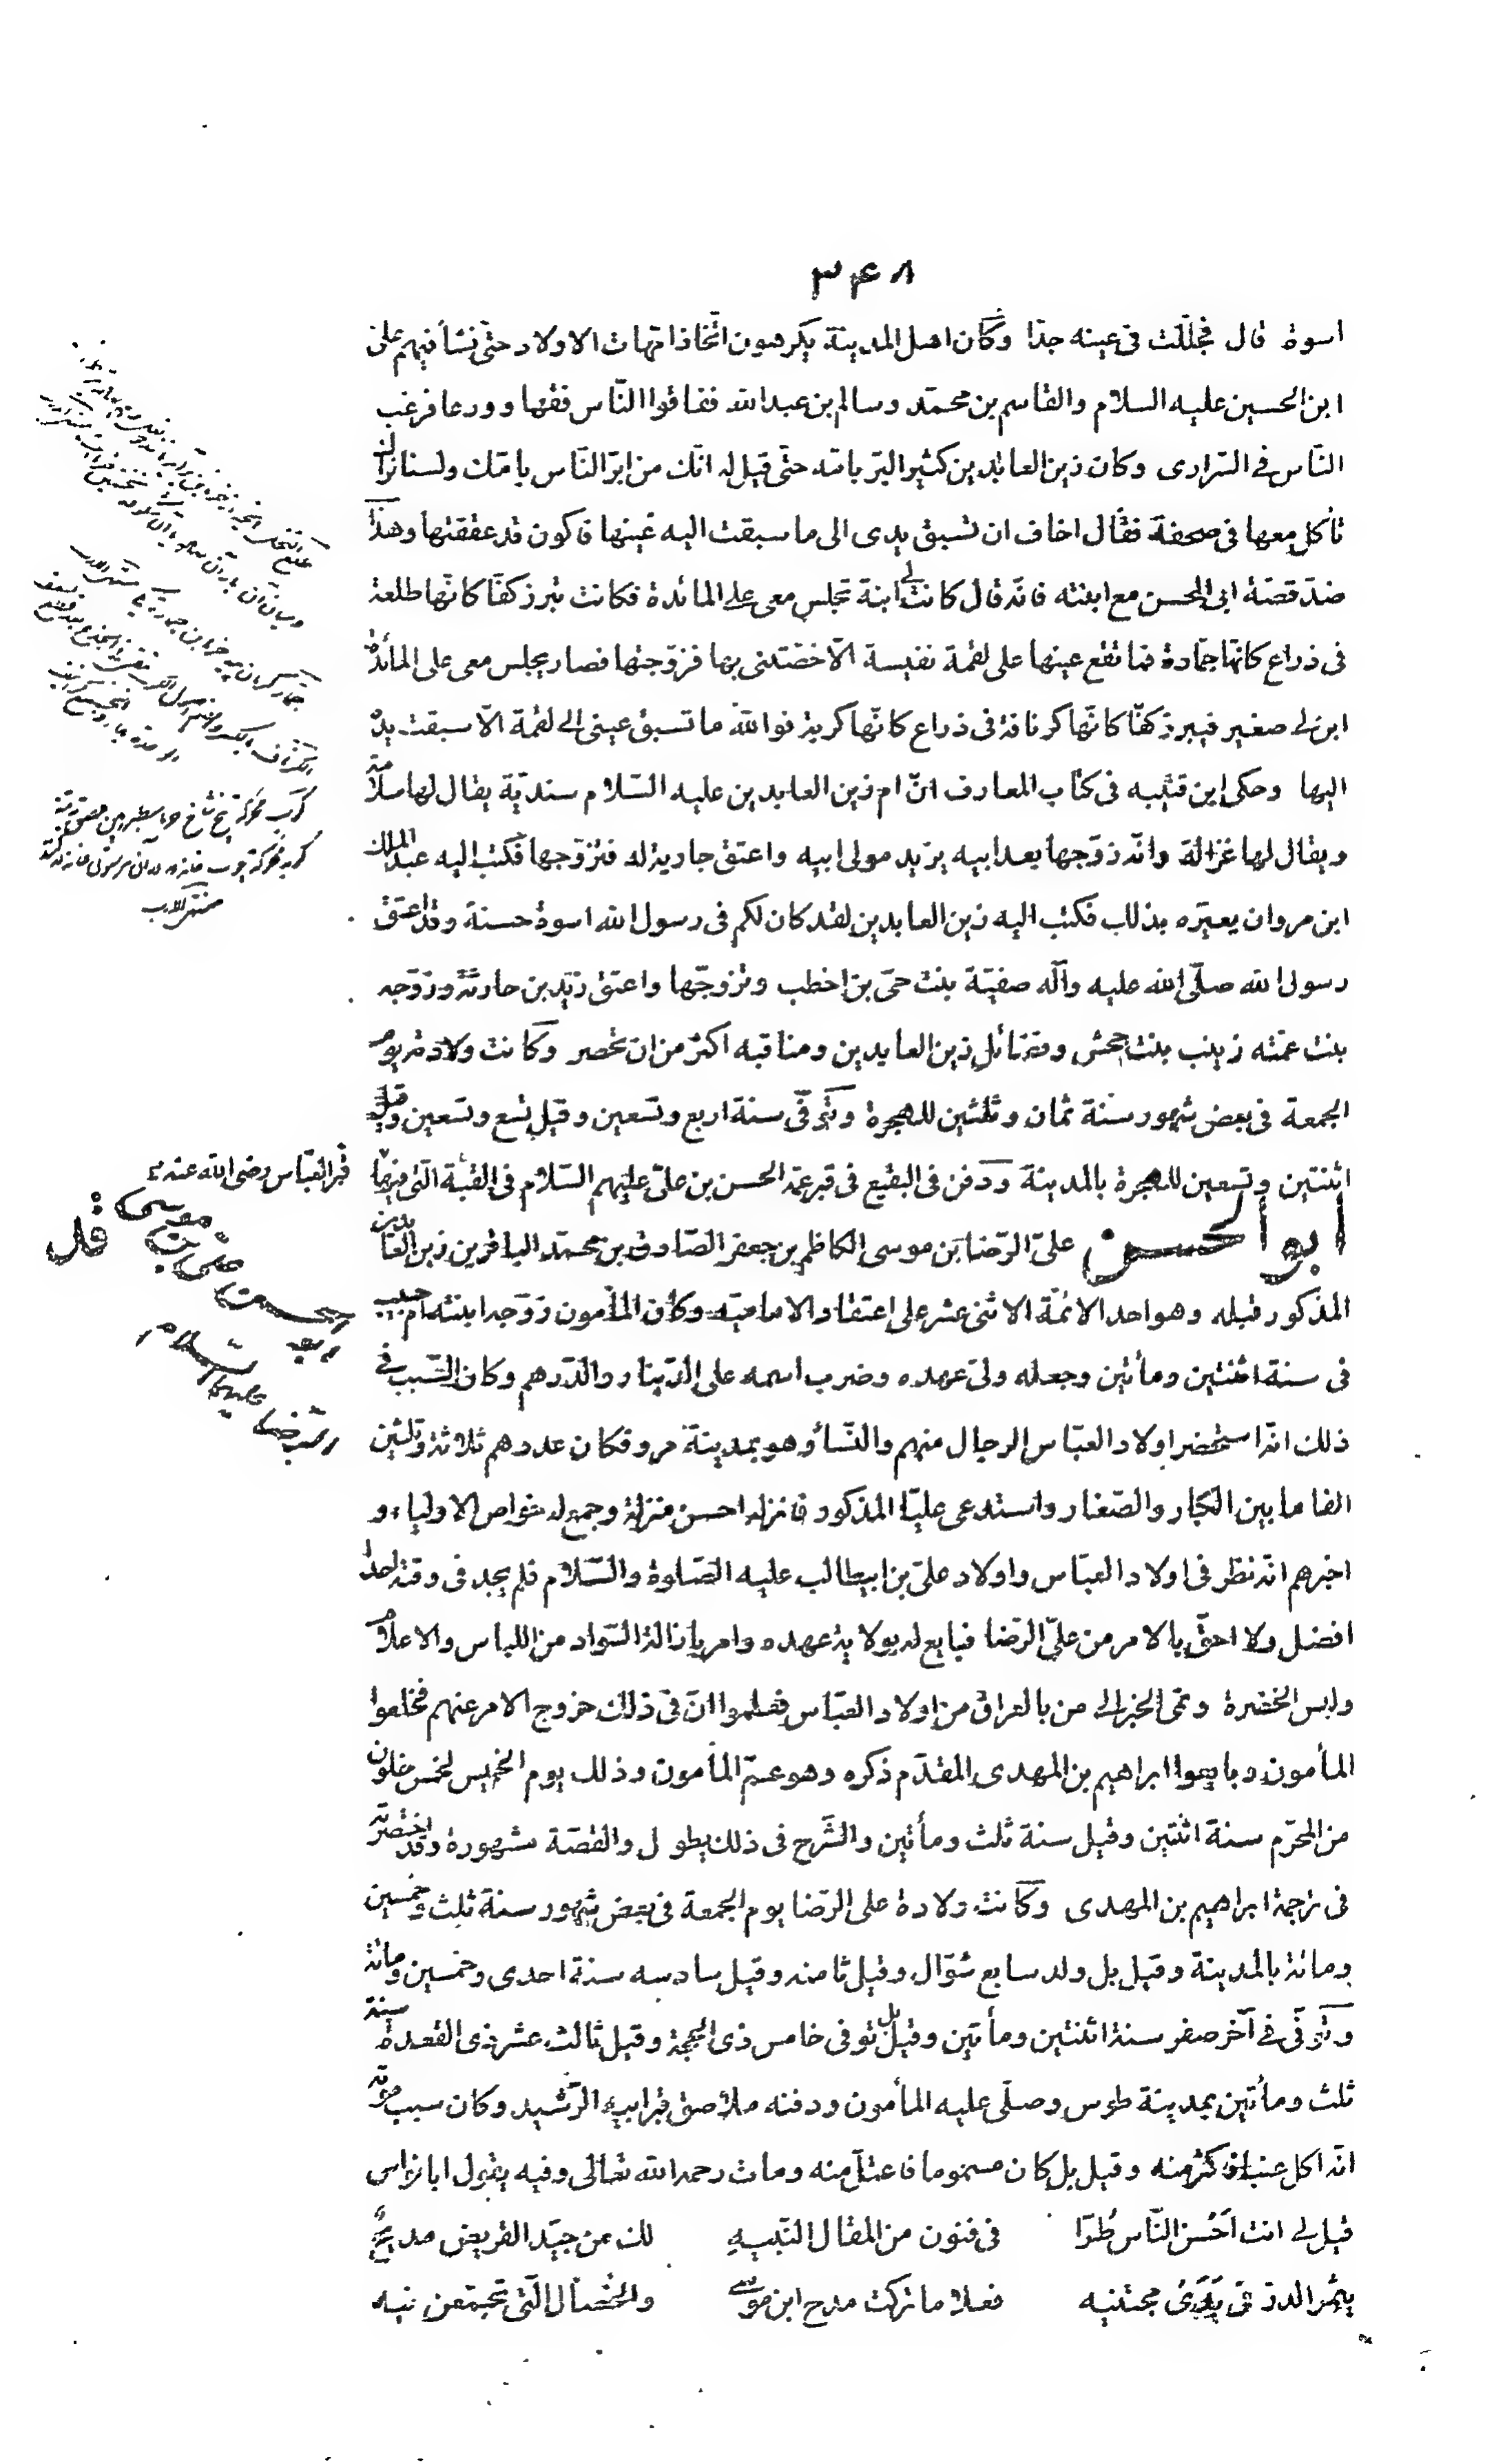 ۳۴۸
اسوة قال فجللت فى عينه جدا وكان اهل المدينة يكرهون اتّخاذ امّهات الاولاد حتى نشأ فيهم على
ابن الحسين عليه السلام والقاسم بن محمّد وسالم بن عبد الله ففاقوا النّاس فقها وورعا فرغب
النّاس فى السّرارى وكان زين العابدين كثير البرّ بامّه حتّى قيل له انّك من ابرّ النّاس بامّك ولسنا نراك
تأكل معها فى صحفة فقال اخاف ان تسبق يدى الى ما سبقت اليه عينها فاكون قد عققتها وهذا
ضدّ قصّة ابى الحسن مع ابنته فانّه قال كانت لى ابنة تجلس معى على المائدة فكانت تبرز كفّا كانّها طلعة
فى ذراع كانّها جمّارة فما تقع عينها على لقمة نفيسة الّا خصّتنى بها فزوّجتها فصار يجلس معى على المائدة
ابن لى صغير فيبرز كفّا كانّها كرنافة فى ذراع كانّها كربة فوالله ما تسبق عينى الى لقمة الّا سبقت يده
اليها وحكى ابن قتيبه فى كتاب المعارف انّ ام زين العابدين عليه السّلام سنديّة يقال لها سلامة
ويقال لها غزالة وانّه زوّجها بعد ابيه بزبيد مولى ابيه واعتق جارية له فتزوّجها فكتب اليه عبد الملك
ابن مروان يعيّره بذلك فكتب اليه زين العابدين لقد كان لكم فى رسول الله اسوة حسنة وقد اعتق
رسول الله صلّى الله عليه وآله صفيّة بنت حىّ بن اخطب وتزوجّها واعتق زيد بن حارثة وزوّجه
بنت عمّته زينب بنت جحش وفضائل زين العابدين ومناقبه اكثر من ان تحصر وكانت ولادته يوم
الجمعة فى بعض شهور سنة ثمان وثلثين للهجرة وتوفّى سنة اربع وتسعين وقيل تسع وتسعين وقيل
اثنتين وتسعين للهجرة بالمدينة ودفن فى البقيع فى قبر عمّه الحسن بن علىّ عليهم السّلام فى القبّة الّتى فيها
قبر العبّاس رضى الله عنه
ابو الحسن علىّ الرّضا بن موسى الكاظم بن جعفر الصّادق بن محمّد الباقر بن زين العابدين
المذكور قبله وهو احد الائمّة الاثنى عشر على اعتقاد الاماميّه وكان المأمون زوّجه ابنته ام حبيب
فى سنة اثنتين ومأتين وجعله ولىّ عهده وضرب اسمه على الدّينار والدّرهم وكان السّبب فى
ذلك انّه استحضر اولاد العبّاس الرجال منهم والنّساء وهو بمدينة مرو فكان عددهم ثلاثة وثلثين
الفا ما بين الكبار والصّغار واستدعى عليّا المذكور فانزله احسن منزلة وجمع له خواص الاولياء و
اخبرهم انّه نظر فى اولاد العبّاس واولاد علىّ بن ابيطالب عليه الصّلوة والسّلام فلم يجد فى وقته احدا
افضل ولا احقّ بالامر من علىّ الرّضا فبايع له بولاية عهده وامر بازالة السّواد من اللباس والاعلام
ولبس الخضرة ونمى الخبر الى من بالعراق من اولاد العبّاس فعلموا انّ فى ذلك خروج الامر عنهم فخلعوا
المأمون وبايعوا ابراهيم بن المهدى المقدّم ذكره وهو عمّ المأمون وذلك يوم الخميس لخمس خلون
من المحرّم سنة اثنتين وقيل سنة ثلث ومأتين والشّرح فى ذلك يطول والقصّة مشهورة وقد اختصرته
فى ترجمة ابراهيم بن المهدى وكانت ولادة على الرّضا يوم الجمعة فى بعض شهور سنة ثلث وخمسين
ومائة بالمدينة وقيل بل ولد سابع شوّال وقيل ثامنه وقيل سادسه سنة احدى وخمسين ومائة
وتوفّى فى آخر صفر سنة اثنتين ومأتين وقيل بل توفى خامس ذى الحجّة وقيل ثالث عشر ذى القعدة سنة
ثلث ومأتين بمدينة طوس وصلّى عليه المأمون ودفنه ملاصق قبر ابيه الرّشيد وكان سبب موته
انّه اكل عنبا فاكثر منه وقيل بل كان مسموما فاعتلّ منه ومات رحمه الله تعالى وفيه يقول ابا نواس
قيل لى انت اَحْسَن النّاس طُرّا فى فنون من المقال النّبيهِ لك من جيّد القريض مديح
يثمر الدرّ فى يَدَى مجتنيه فعلا ما تركت مدح ابن موسى والخصال الّتى تجمّعن فيه